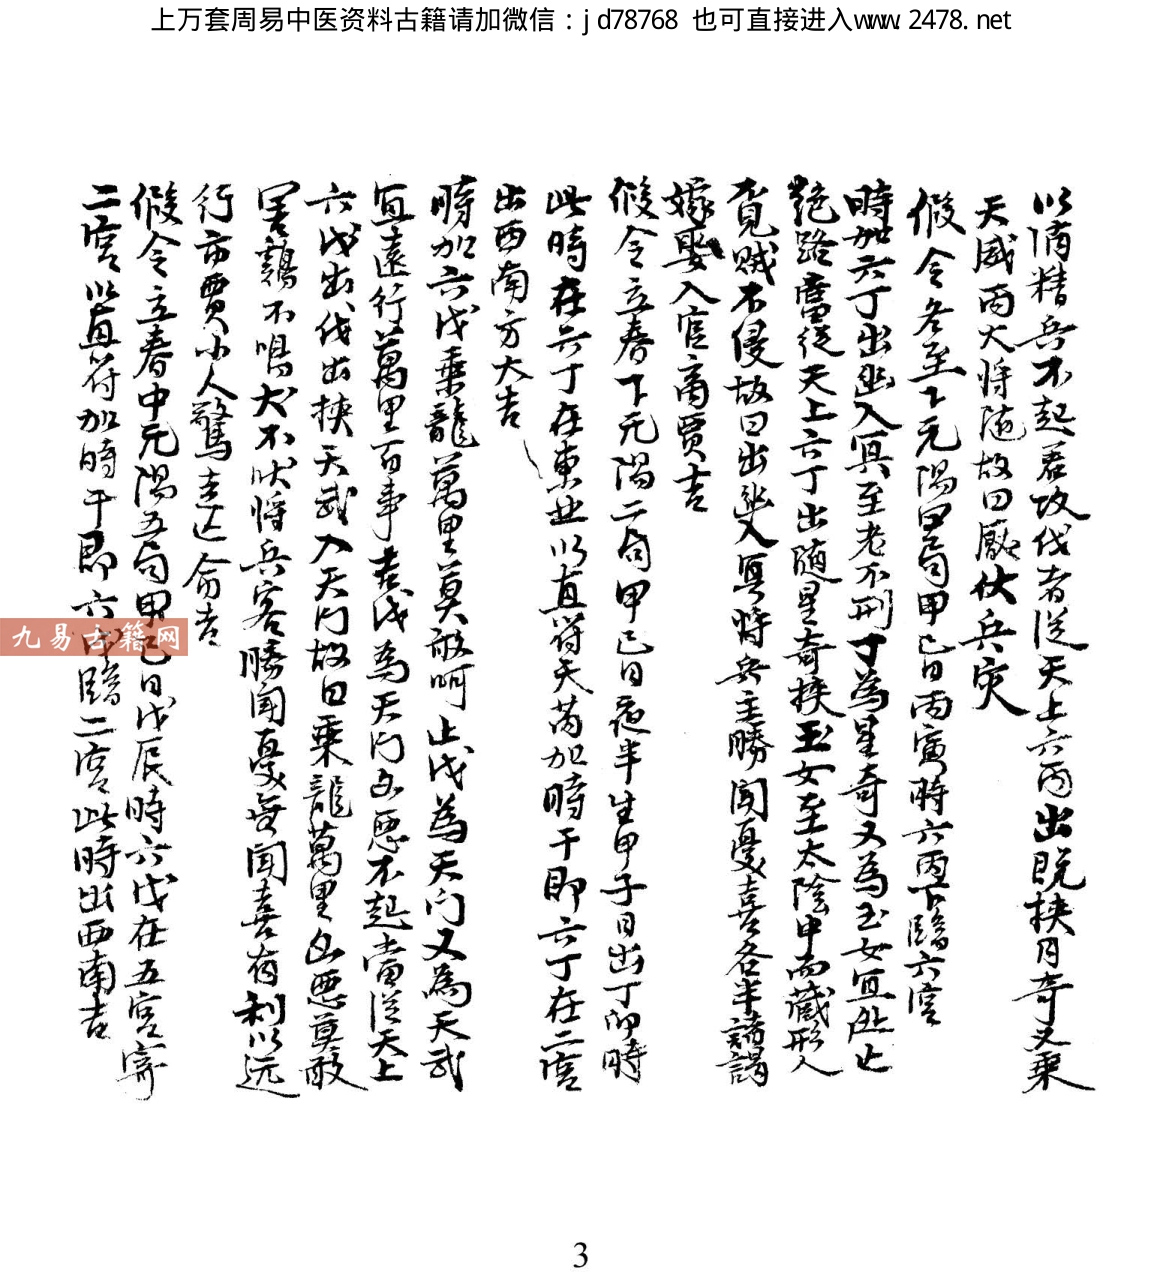 上万套周易中医资料古籍请加微信：jd78768 也可直接进入www.2478.net
以消精兵不起若攻伐者從天上六丙出既挾月奇又乘
天威丙大将随故曰厭伏兵灾
假令冬至下元陽四局甲己日丙寅時六丙下臨六宫
時加六丁出幽入冥至老不刑丁為星奇又為玉女宜
絶路當從天上六丁出随星奇挾玉女至太陰中而藏形人
不見賊不侵故曰出幽入冥将兵主勝聞憂喜各半請謁
嫁娶入官商賈吉
假令立春下元陽二局甲己日夜半生甲子日出丁卯時
此時在六丁在東 以直符天芮加時干即六丁在二宫
出西南方大吉
時加六戊乘龍萬里莫敢呵止戊為天门又為天武
宜遠行萬里百事吉戊為天门凶悪不起當從天上
六戊出伐出挾天武入天门故曰乘龍萬里凶悪莫敢
害鷄不鳴犬不吠将兵客勝聞憂無聞喜有利以远
行市賈小人驚走亡命吉
假令立春中元陽五局甲己日戊辰時六戊在五宫寄
二宫以直符加時干即六甲臨二宫此時出西南吉
九易古籍网
3